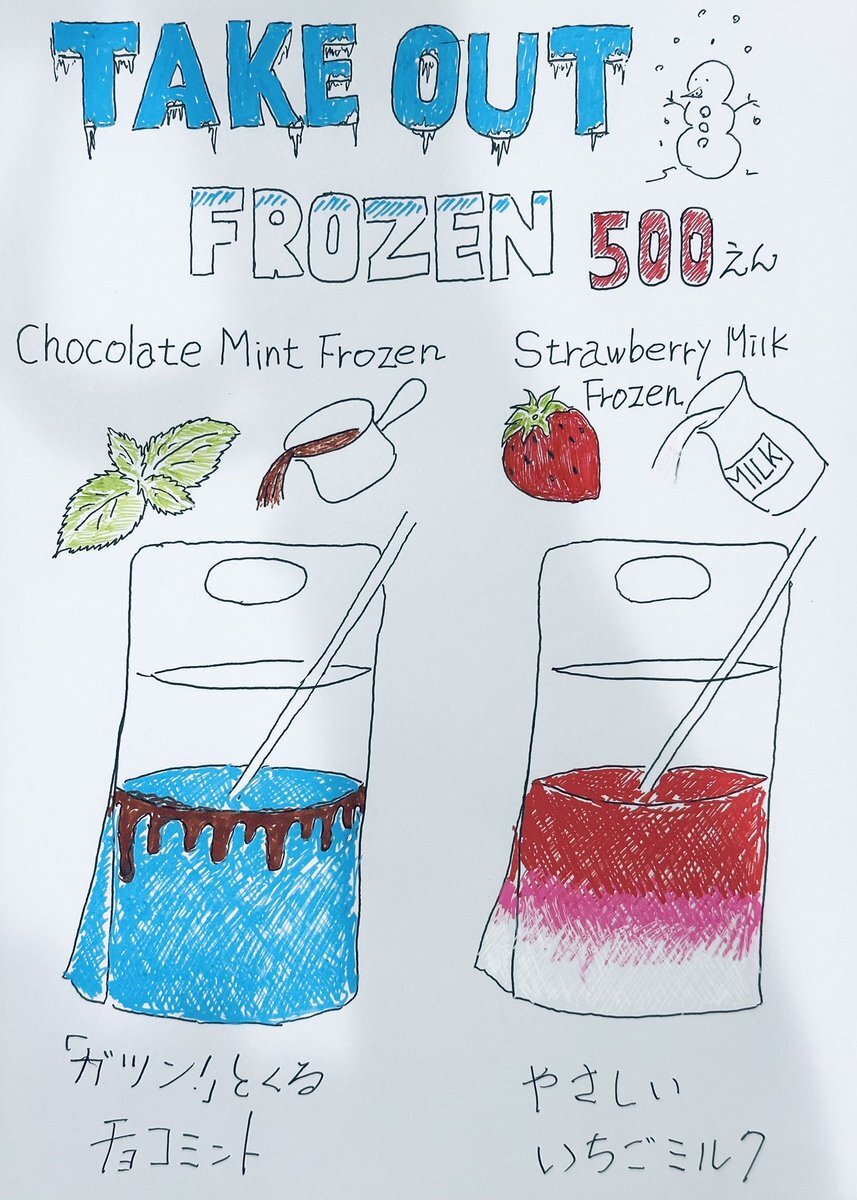 TAKE OUT
FROZEN 500えん
Chocolate Mint Frozen
Strawberry Milk
Frozen
MILK
「ガツン!」とくる
チョコミント
やさしい
いちごミルク